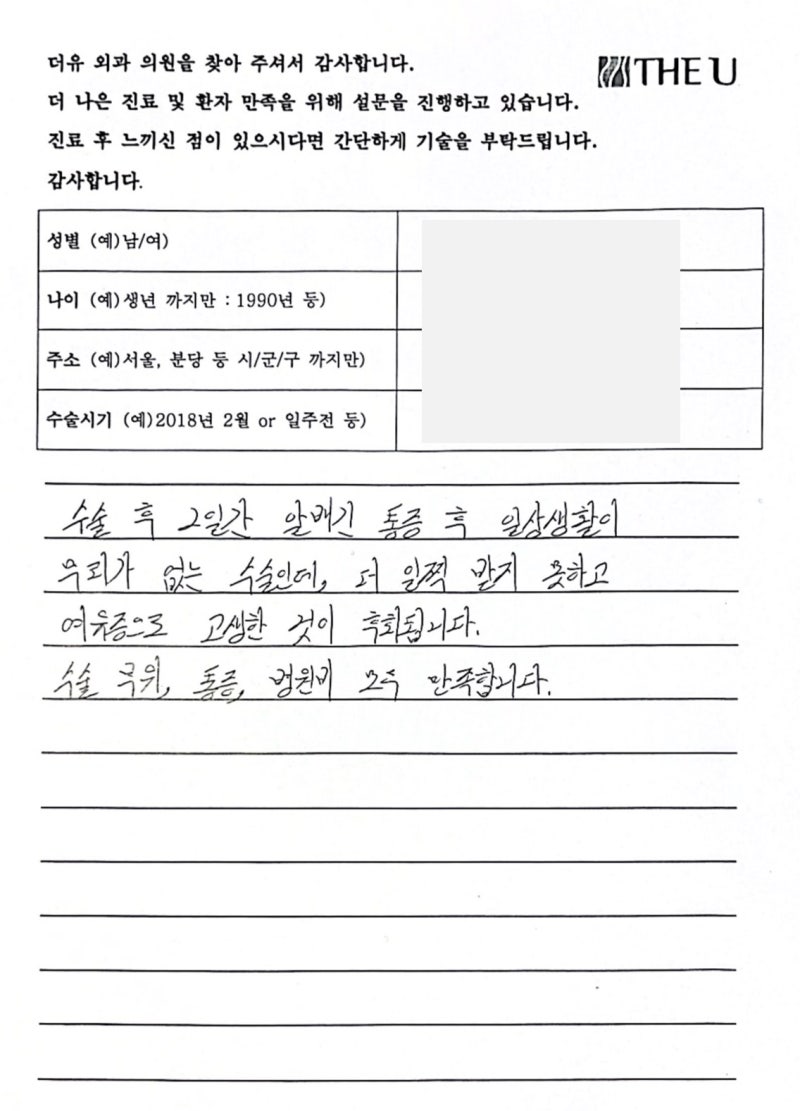 더유 외과 의원을 찾아 주셔서 감사합니다.
THE U
더 나은 진료 및 환자 만족을 위해 설문을 진행하고 있습니다.
진료 후 느끼신 점이 있으시다면 간단하게 기술을 부탁드립니다.
감사합니다.
성별 (예)남/여)
나이 (예)생년 까지만 : 1990년 등)
주소 (예)서울, 분당 등 시/군/구 까지만)
수술시기 (예)2018년 2월 or 일주전 등)
수술 후 2일간 알배긴 통증 후 일상생활이
무리가 없는 수술인데, 더 일찍 받지 못하고
여유증으로 고생한 것이 후회됩니다.
수술 부위, 통증, 병원비 모두 만족합니다.